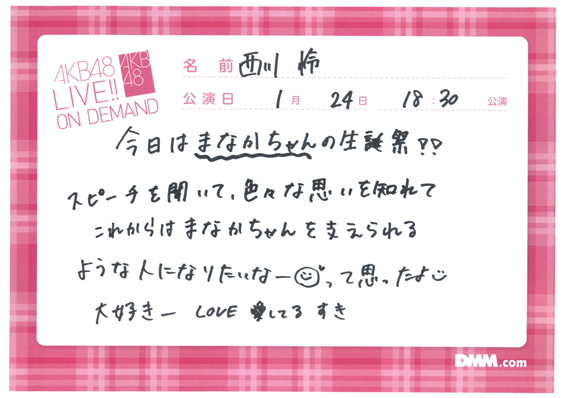 AKB48
LIVE!!
ON DEMAND
AKB
48
名前 西川 怜
公演日 1月 24日 18:30 公演
今日はまなかちゃんの生誕祭!!
スピーチを聞いて、色々な思いを知れて
これからはまなかちゃんを支えられる
ような人になりたいなーって思ったよ
大好きー LOVE 愛してる すき
DMM.com